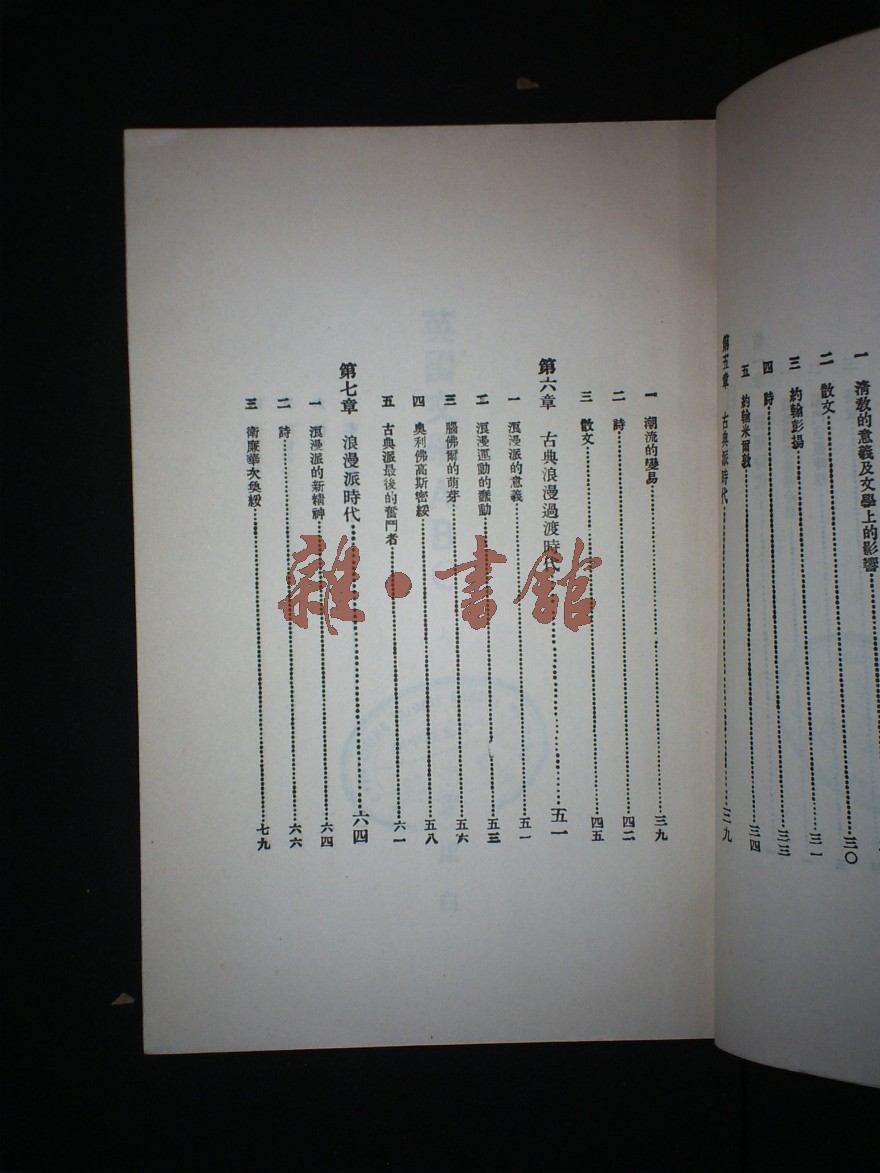 一　清教的意義及文學上的影響……三〇
二　散文……三一
三　約翰彭揚……三三
四　詩……三四
五　約翰米爾敦
第五章　古典派時代……三九
一　潮流的變易……三九
二　詩……四二
三　散文……四五
第六章　古典浪漫過渡時代……五一
一　浪漫派的意義……五一
二　浪漫運動的蠢動……五三
三　腦佛爾的萌芽……五六
四　奧利佛高斯密綏……五八
五　古典派最後的奮鬥者……六一
第七章　浪漫派時代……六四
一　浪漫派的新精神……六四
二　詩……六六
三　衛廉華次奐綏……七九
雜·書館